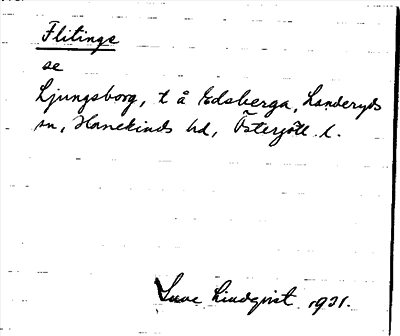 Flitinge
se
Ljungsborg, t å Edsberga, Landeryds
sn, Hanekinds hd, Östergötl. l.
Sune Lindqvist 1931.